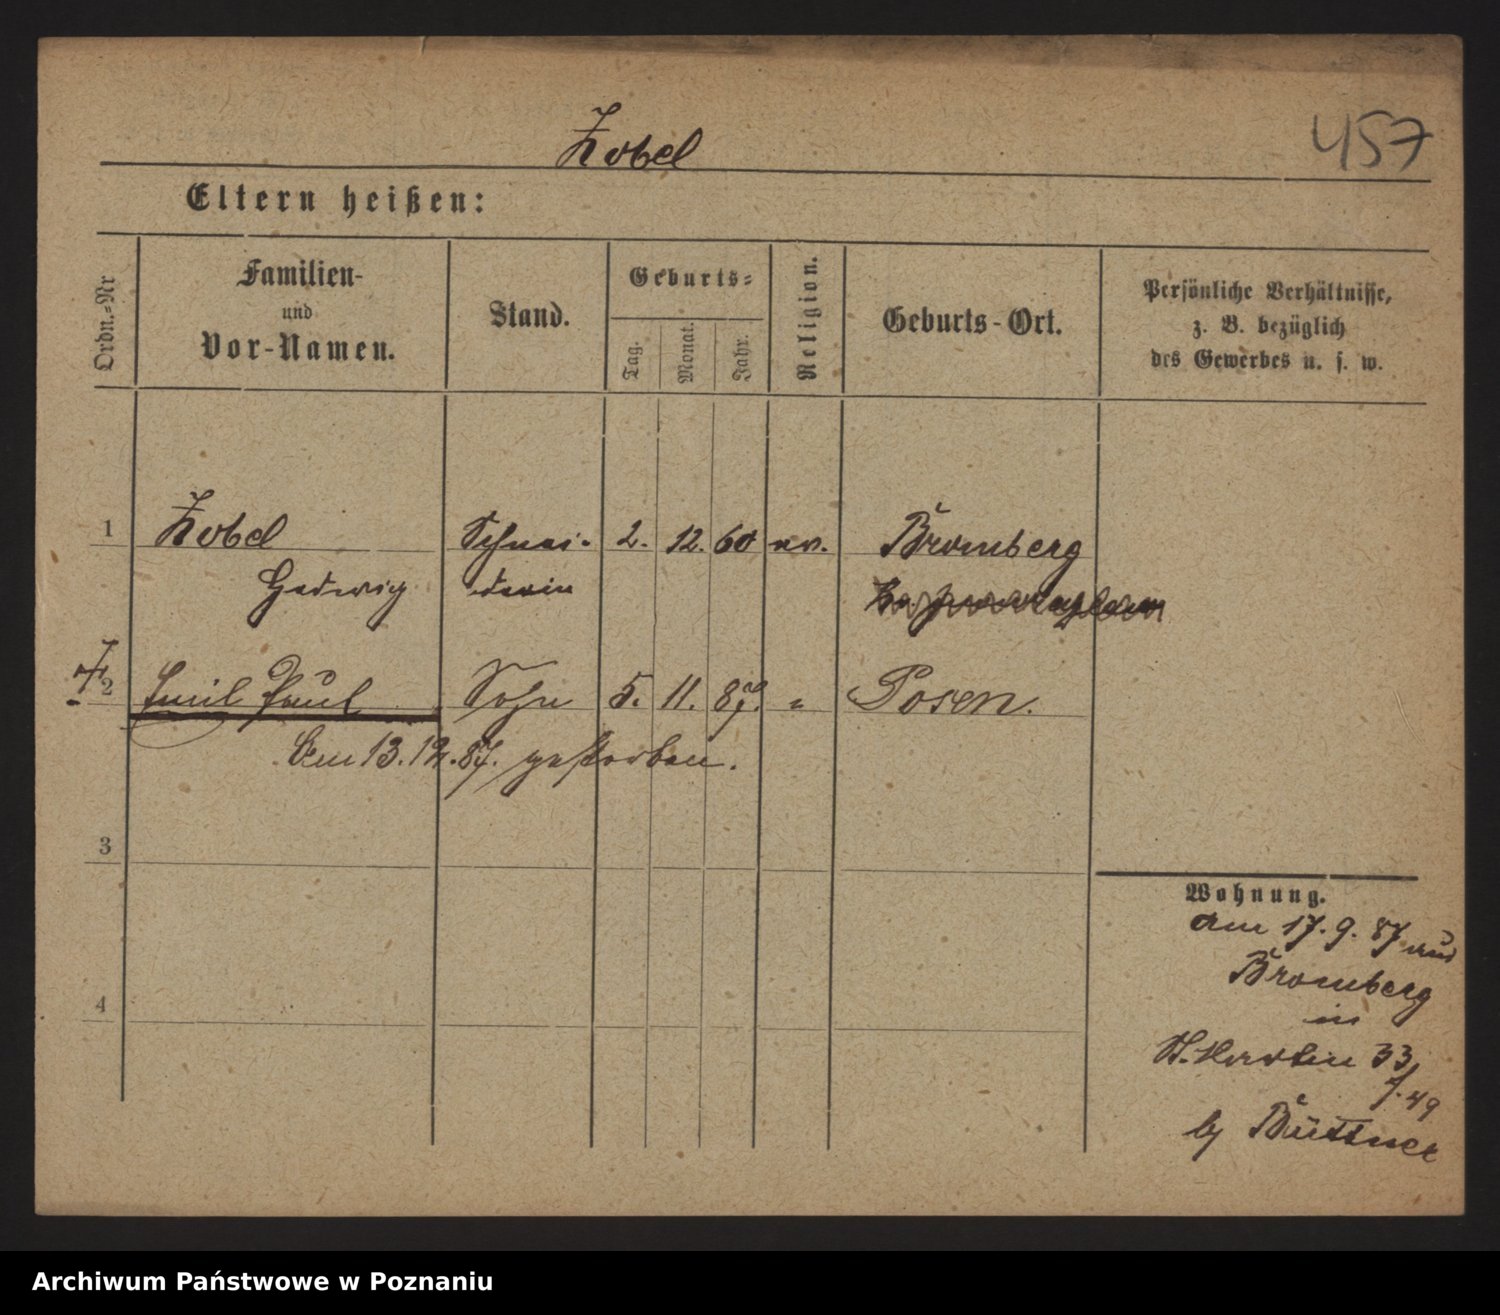 457
Zobel
Eltern heißen:
Ordn.-Nr
Familien-
und
Vor-Namen.
Stand.
Geburts-
Tag.
Monat.
Jahr.
Religion.
Geburts-Ort.
Persönliche Verhältnisse,
z. B. bezüglich
des Gewerbes u. s. w.
1 Zobel Schnei- 2. 12. 60 ev. Bromberg
Hedwig derin
2 Emil Paul Sohn 5. 11. 87. " Posen.
Am 13.12.87. gestorben.
3
4
Wohnung.
am 17. 9. 87 aus
Bromberg
in
St. Martin 33
f. 49
by Büttner
Archiwum Państwowe w Poznaniu